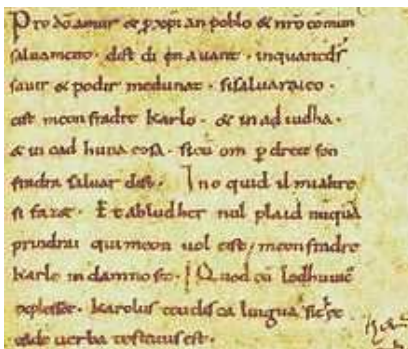 Pro dō amur & p xpian poblo & nrō cōmun
saluament. dist di en auant. inquantdſ
sauir & podir medunat. sisaluaraieo.
cist meon fradre karlo. & in adiudha.
& in cad huna cosa. sicū om p dreit son
fradra saluar dist. Ino quid il mialtre
si faz&. Et abludher nul plaid nūquā
prindrai qui meon uol cist meon fradre
karle in damno sit. Quod cū lodhuuic
explesset. karolus teudisca lingua sic
eadē uerba testatus est.